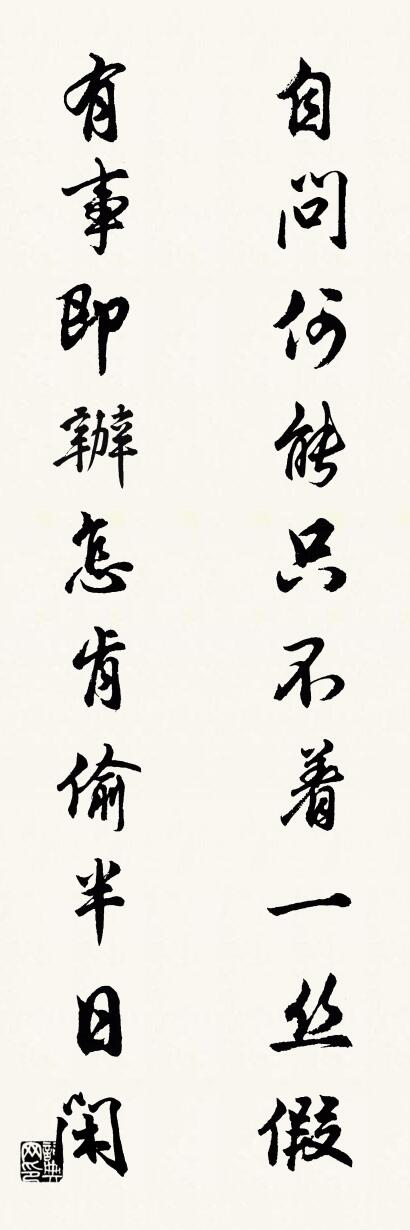 自问何能只不着一丝假
有事即辦怎肯偷半日闲